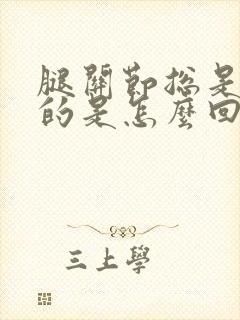 腿關節總是
的是怎麼回
三上學